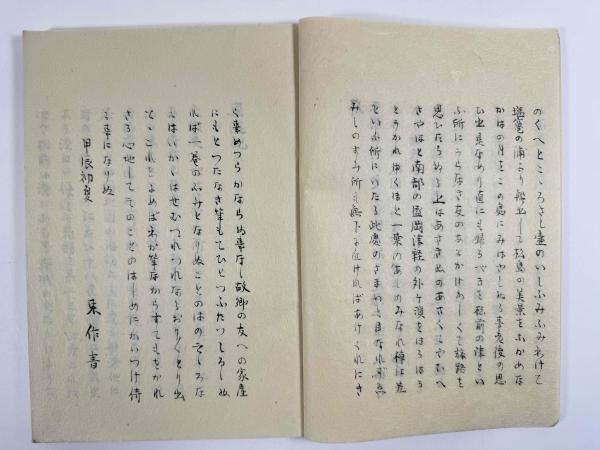 のくへとこゝろさし壷のいしふみふみわけて
塩竃の浦より船出して松島の美景をなかめな
かはの月をこの島にみはやしぬる事老後の思
ひ出是なめり直にも帰るへきを越前の津とい
ふ所にうらなき友のあなかはわしくて旅路を
思ひたちぬる上はあさきぬのあさくてやむへ
きやはと南部の盛岡津軽の外ヶ濱をはろはろ
とうかれゆくほと一葉の舟しのみなれ棹
といふ所にいたる此處のさまわき目なれ
みしのすみ所も無下に近けれはあけくれにき
く事めつらかならぬ事なし故郷の友への家産
にもとつたなき筆もてひとつふたつしるしぬ
れば一巻のふみとなりぬことのはのそしろな
とはいかくはせむつれつれなるおりくとり出
てこれをよめばわか筆なからすてもをかれ
さる心地してそのことのはしめにかいつけ侍
る事になりぬ
甲辰初夏
東作書